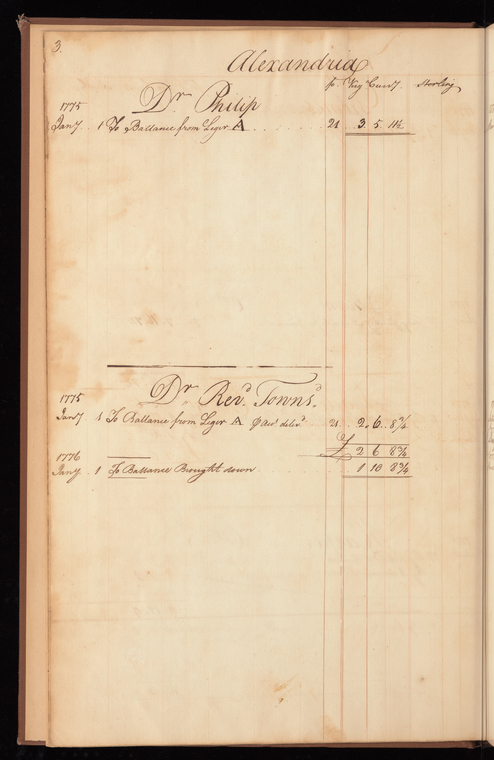 3.
Alexandria
fo. Virg Curry. Sterling
Dr Philip
1775
Jany. 1 To Ballance from Leger A 21 3. 5. 11½
Dr Revd. Townsd.
1775
Jany 1 To Ballance from Leger A ⅌ Acct delivd 21. 2. 6. 8¾
£ 2 6 8¾
1776
Jany. 1 To Ballance Brought down 1 10 8¾